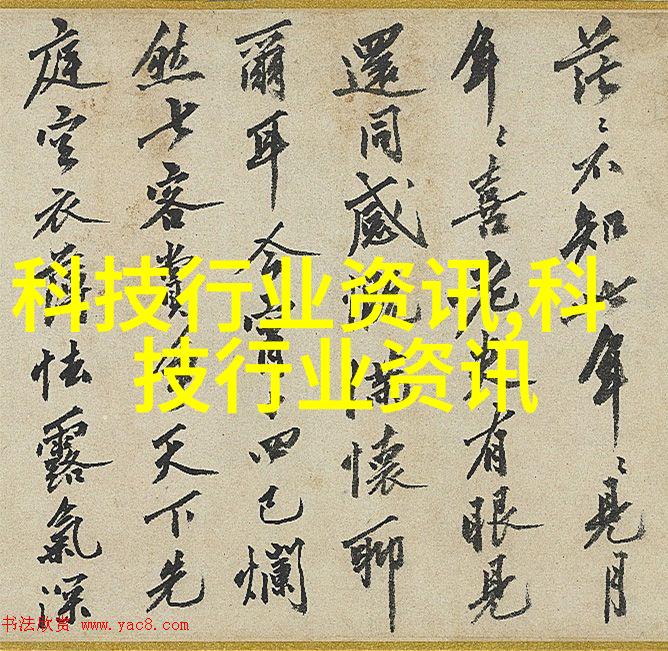 茫〻不知此年〻見月
年〻喜有眼見
還同感懷聊
爾耳今宵四已爛
然七客賞天下先
庭空衣薄怯露氣深
科技行业资讯,科
技行业资讯
书法欣赏 www.yac8.com